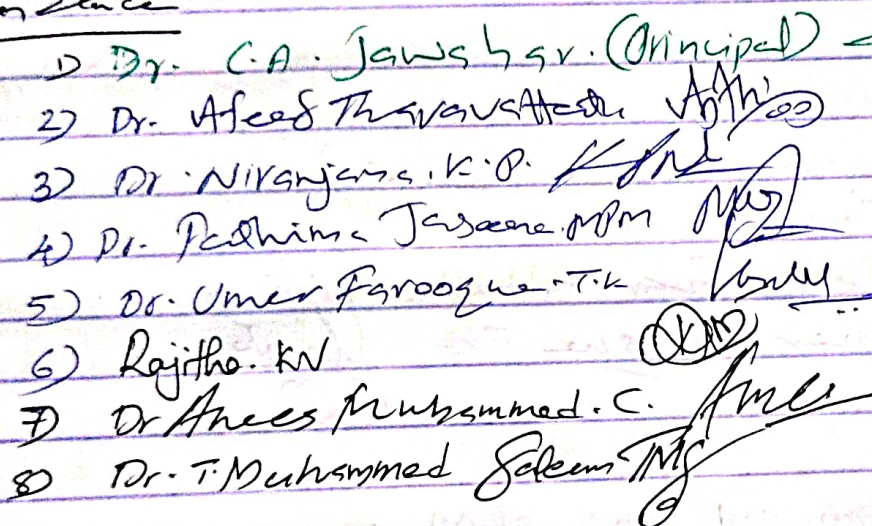 1) Dr. C.A. Jawahar. (Principal)
2) Dr. Afeef Tharavattath
3) Dr. Niranjana. K.P.
4) Dr. Fathima Jaseena. MPM
5) Dr. Umer Farooque. T.K
6) Rajitha. KV
7) Dr Anees Muhammed. C.
8) Dr. T. Muhammed Saleem